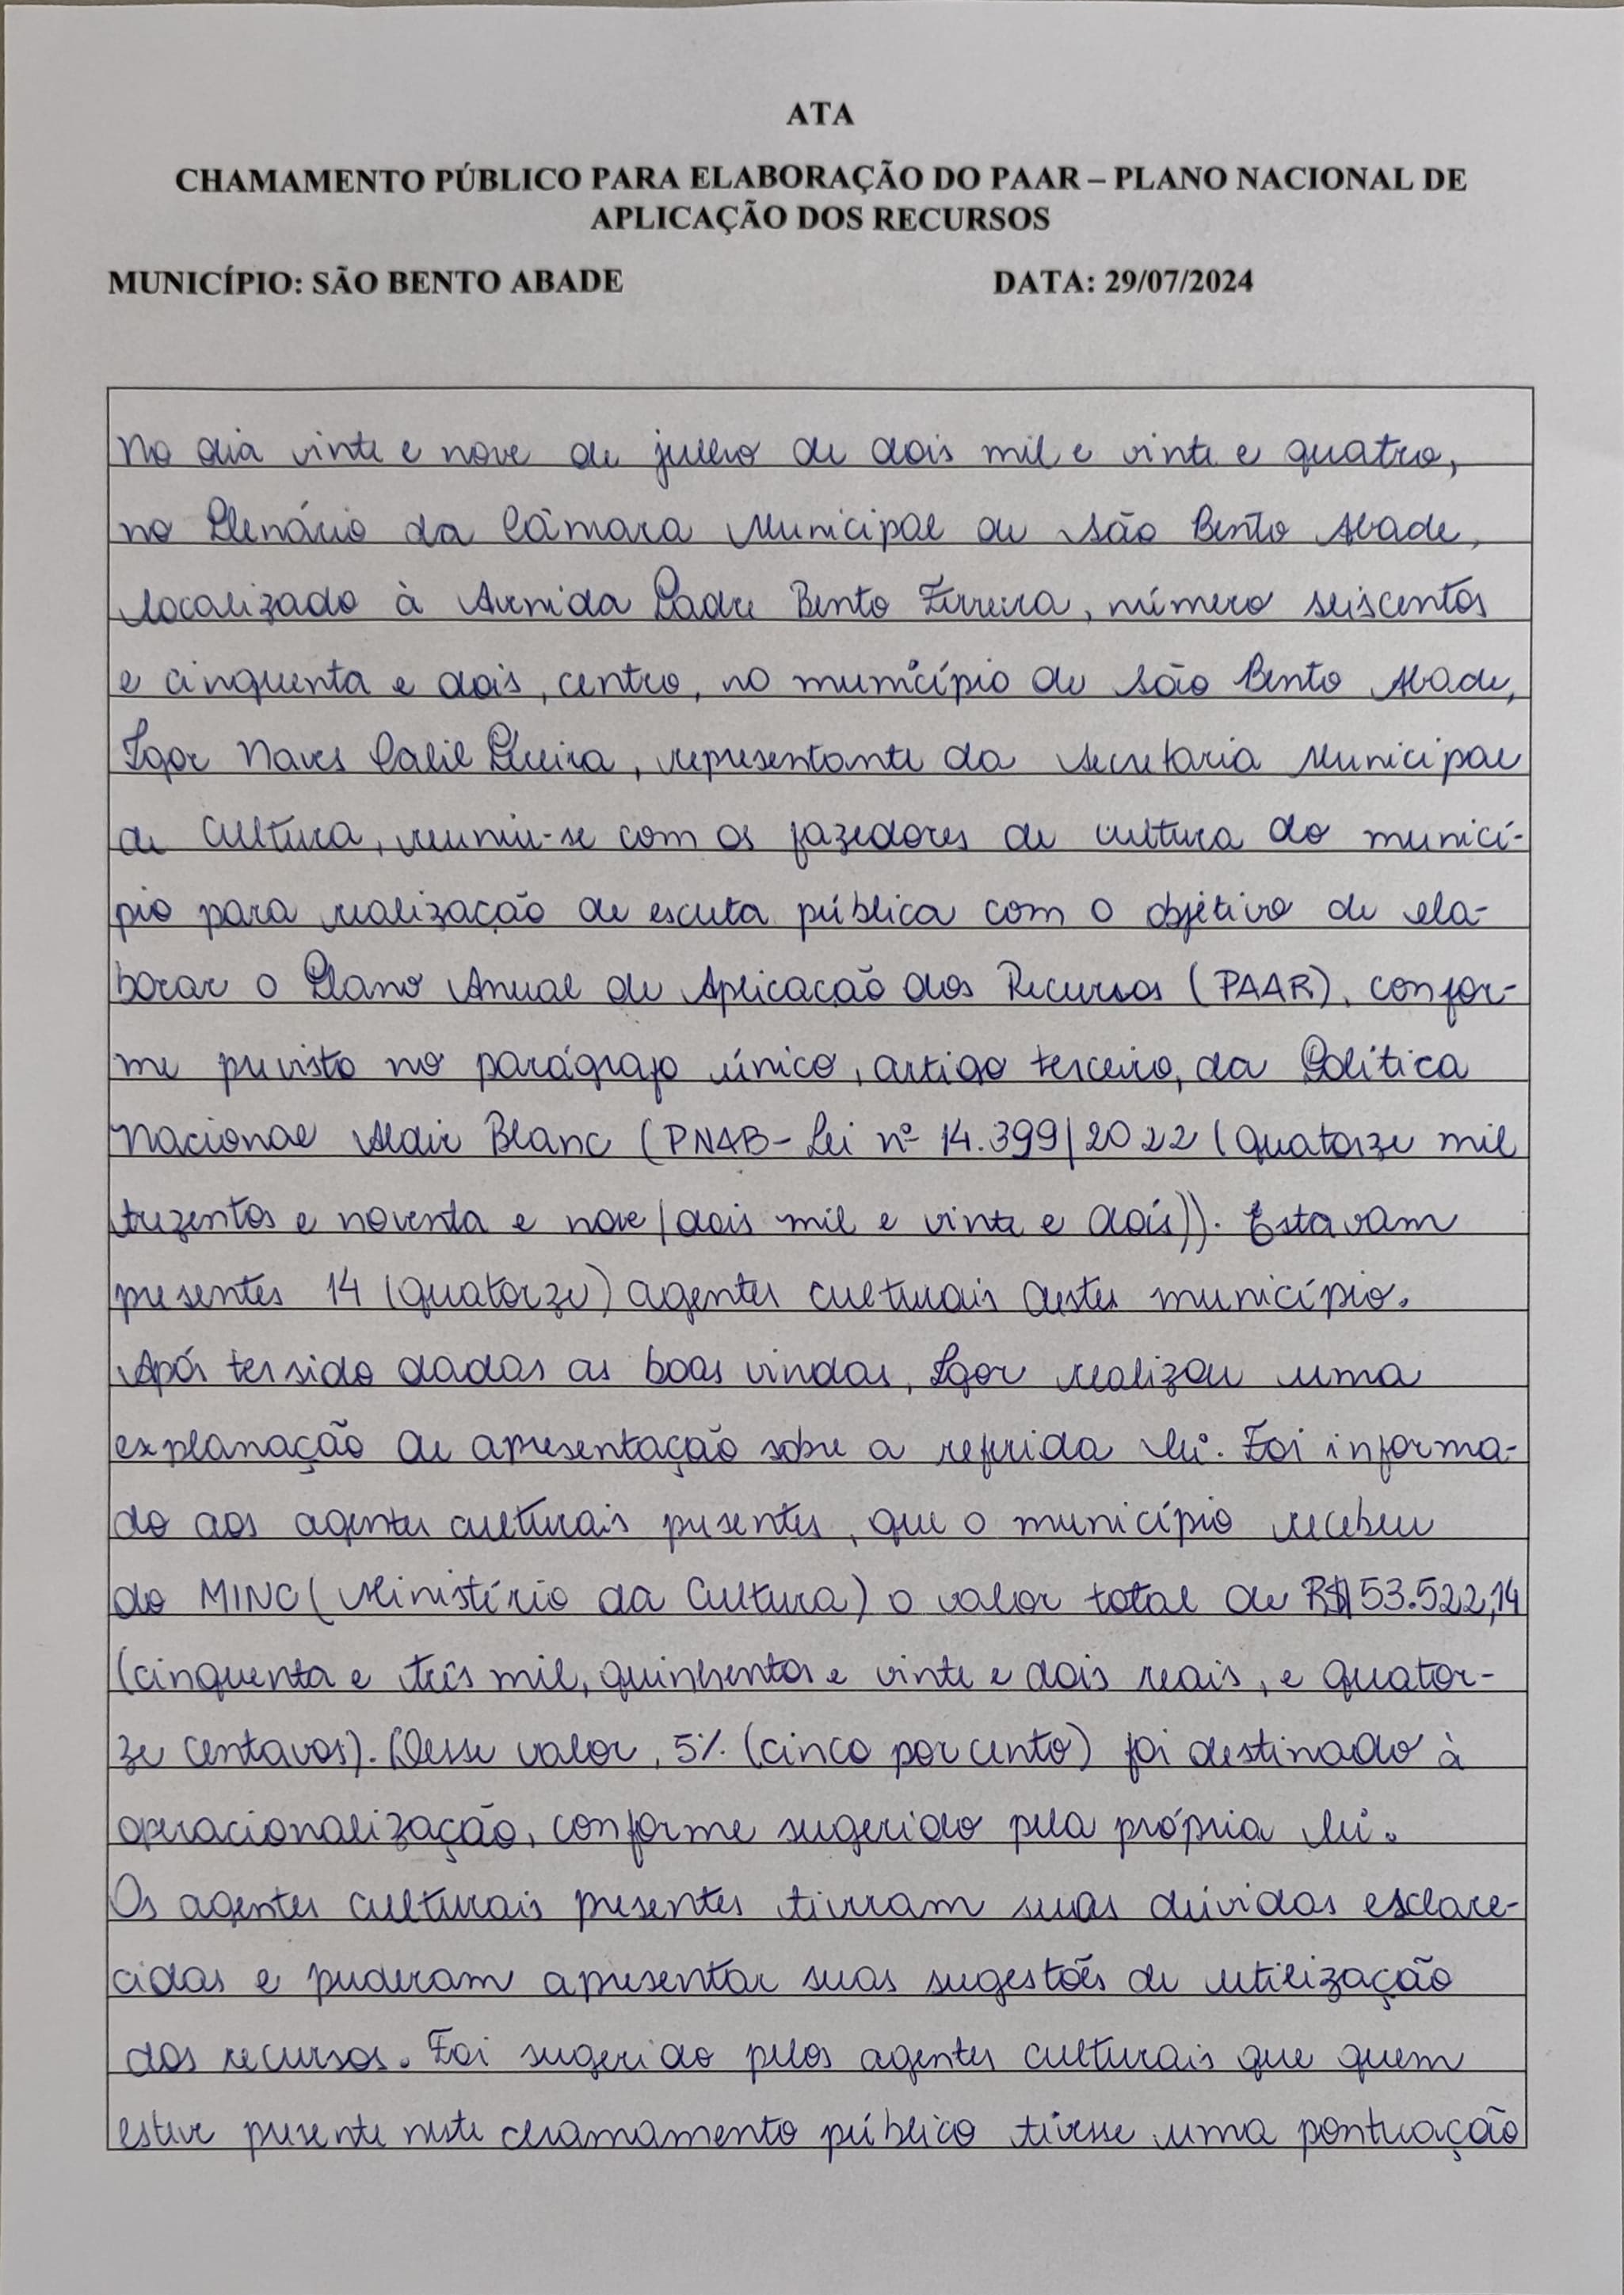 ATA
CHAMAMENTO PÚBLICO PARA ELABORAÇÃO DO PAAR – PLANO NACIONAL DE
APLICAÇÃO DOS RECURSOS
MUNICÍPIO: SÃO BENTO ABADE DATA: 29/07/2024
No dia vinte e nove de julho de dois mil e vinte e quatro,
no Plenário da Câmara Municipal de São Bento Abade,
localizado à Avenida Padre Bento Ferreira, número seiscentos
e cinquenta e dois, centro, no município de São Bento Abade,
Igor Naves Calil Pereira, representante da Secretaria Municipal
de Cultura, reuniu-se com os fazedores de cultura do municí-
pio para realização de escuta pública com o objetivo de ela-
borar o Plano Anual de Aplicação dos Recursos (PAAR), confor-
me previsto no parágrafo único, artigo terceiro, da Política
Nacional Aldir Blanc (PNAB-Lei nº 14.399/2022 (quatorze mil
trezentos e noventa e nove/dois mil e vinte e dois)). Estavam
presentes 14 (quatorze) agentes culturais destes município.
Após ter sido dadas as boas vindas, Igor realizou uma
explanação de apresentação sobre a referida lei. Foi informa-
do aos agentes culturais presentes, que o município recebeu
do MINC (Ministério da Cultura) o valor total de R$ 53.522,14
(cinquenta e três mil, quinhentos e vinte e dois reais, e quator-
ze centavos). Desse valor, 5% (cinco por cento) foi destinado à
operacionalização, conforme sugerido pela própria lei.
Os agentes culturais presentes tiveram suas dúvidas esclare-
cidas e puderam apresentar suas sugestões de utilização
dos recursos. Foi sugerido pelos agentes culturais que quem
esteve presente neste chamamento público tivesse uma pontuação